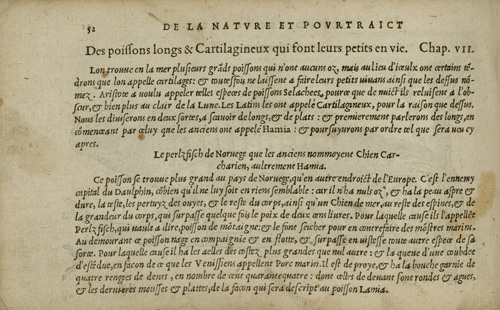 52 DE LA NATVRE ET POVRTRAICT
Des poissons longs & Cartilagineux qui font leurs petits en vie. Chap. VII.
Lon trouve en la mer plusieurs grãds poissons qui n'ont aucuns oz, mais au lieu d'iceulx ont certains tẽ-
drons que lon appelle cartilages: & toutesfois ne laissent a faire leurs petits vivans ainsi que les dessus nõ-
mez. Aristote a voulu appeler telles especes de poissons Selachees, pource que de nuict ils reluisent a l'obs-
cur, & bien plus au clair de la Lune. Les Latins les ont appelé Cartilagineux, pour la raison que dessus.
Nous les diviserons en deux sortes, a sçavoir de longs, & de plats: & premierement parlerons des longs, en
cõmenceant par celuy que les anciens ont appelé Hamia: & poursuyvrons par ordre tel que sera veu cy
apres.
Le perlzfisch de Noruege que les anciens nommoyent Chien Car-
charien, aultrement Hamia.
Ce poisson se trouve plus grand au pays de Noruege, qu'en autre endroict de l'Europe. C'est l'ennemy
capital du Daulphin, cõbien qu'il ne luy soit en riens semblable: car il n'ha nuls oz, & ha la peau aspre &
dure, la teste, les pertuyz des ouyes, & le reste du corps, ainsi qu'un Chien de mer, au reste des espines, & de
la grandeur du corps, qui surpasse quelque fois le poix de deux cens livres. Pour laquelle cause ils l'appellẽt
Perlzfisch, qui vault a dire, poisson de mõtaigne: & le font seicher pour en contrefaire des mõstres marins.
Au demourant ce poisson nage en compaignie & en flotte, & surpasse en vistesse toute autre espece de sa
sorte. Pour laquelle cause il ha les aelles des costez plus grandes que nul autre: & la queue d'une coubdee
d'estẽdue, en façon de ce que les Venissiens appellent Porc marin. Il est de proye, & ha la bouche garnie de
quatre renges de dents, en nombre de cent quarantequatre: dont celles de devant sont rondes & agues,
& les dernieres mousses & plattes, de la façon qui sera descript au poisson Lamia.